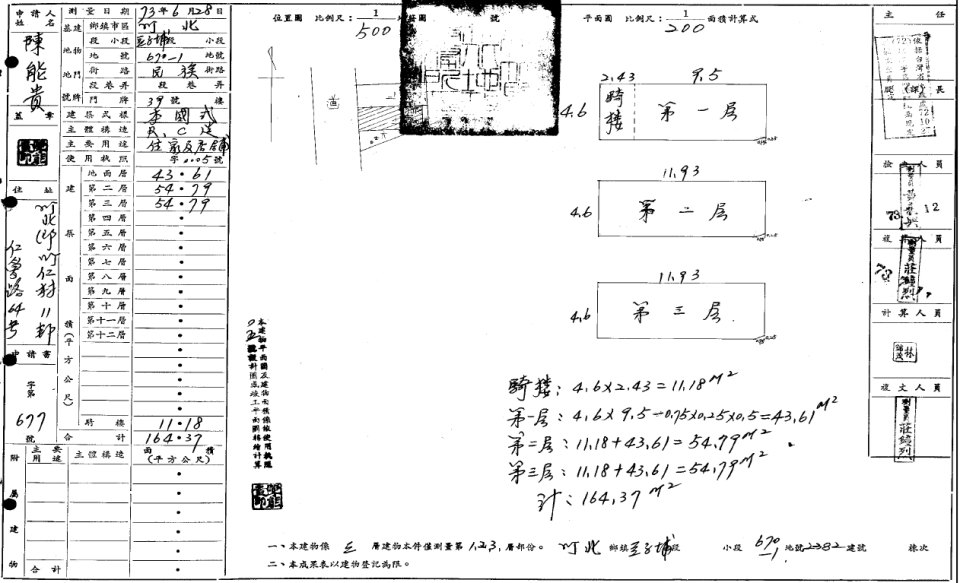 申請人
姓名
陳能貴
蓋章
住址
竹北鄉竹仁村11鄰
仁愛路64号
申請書
字第
677
號
測量日期 73年6月28日
基地 鄉鎮市區 竹北
段小段 段 小段
地號 670-1 地號
建物門牌 街路 民族 街路
段巷弄 段 巷 弄
門牌 39號 樓
建築式樣 本國式
主體構造 R.C造
主要用途 住家及店舖
使用執照 字 號
建築面積(平方公尺)
地面層 43.61
第二層 54.79
第三層 54.79
第四層
第五層
第六層
第七層
第八層
第九層
第十層
第十一層
第十二層
騎樓 11.18
合計 164.37
附屬建物
主要用途 主體構造 面積(平方公尺)
合計
位置圖 比例尺: 1/500 地籍圖 號
平面圖 比例尺: 1/200 面積計算式
2.43 9.5
4.6 騎楼 第一层
11.93
4.6 第二层
11.93
4.6 第三层
騎楼: 4.6×2.43=11.18 M²
第一层: 4.6×9.5-0.75×0.25×0.5=43.61 M²
第二层: 11.18+43.61=54.79 M²
第三层: 11.18+43.61=54.79 M²
計: 164.37 M²
一、本建物係 三 層建物本件僅測量第1,2,3,層部份。 竹北 鄉鎮 段 小段 670-1 地號 2382 建號 棟次
二、本成果表以建物登記為限。
主任
課長
檢查人員
複丈人員
計算人員
測量員 莊錦烈